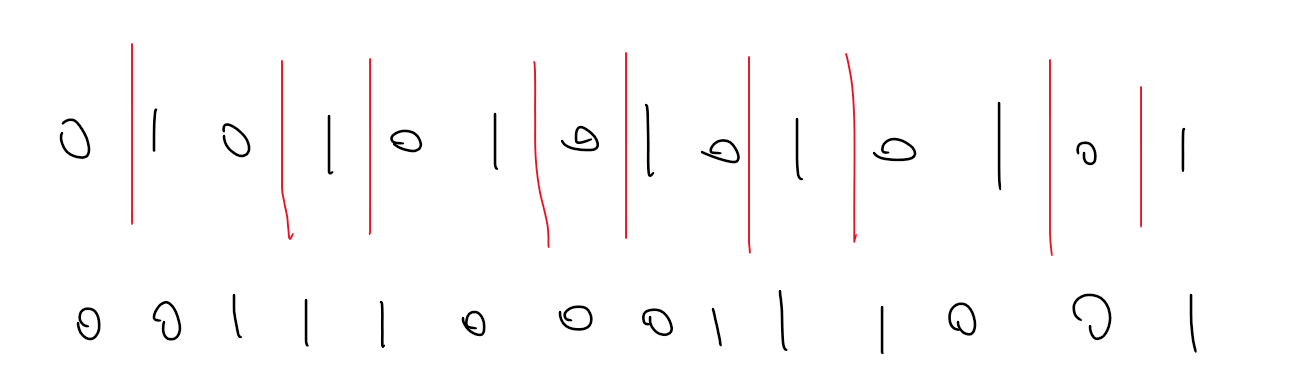 0 | 1 0 | 1 | 0 1 | 0 | 1 0 | 1 | 0 1 | 0 | 1
0 0 1 1 1 0 0 0 1 1 1 0 0 1